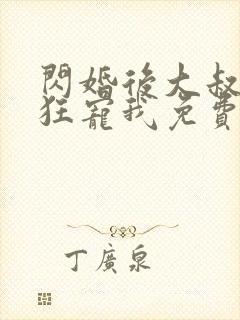 閃婚後大叔
狂寵我免費
丁廣泉